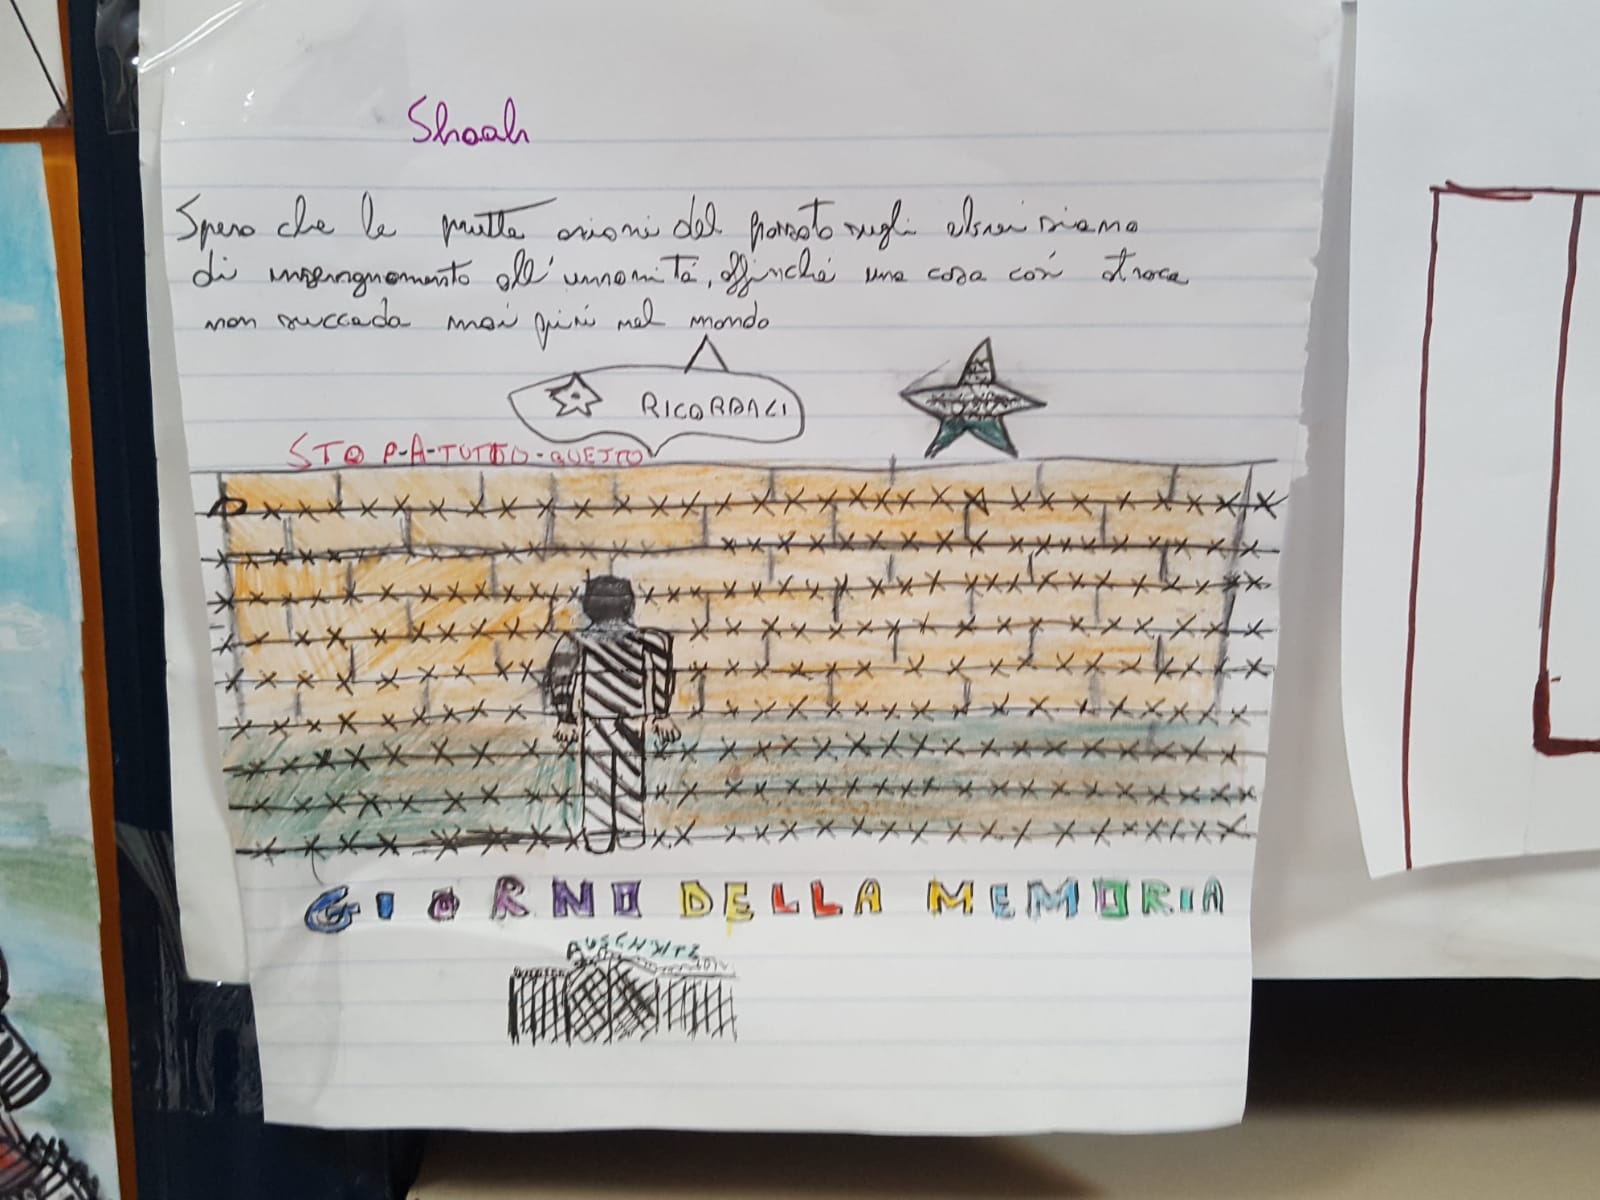 Shoah
Spero che le brutte azioni del passato sugli ebrei siano
di insegnamento all'umanità, affinché una cosa così atroce
non succeda mai più nel mondo
RICORDACI
STOP-A-TUTTO-QUESTO
GIORNO DELLA MEMORIA
AUSCHWITZ